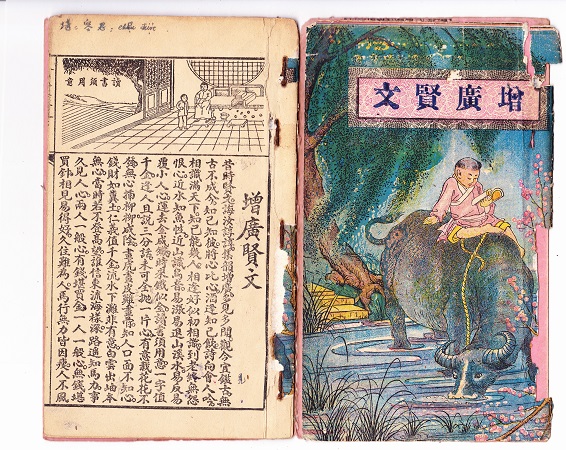 讀書須用意
增廣賢文
昔時賢文誨汝諄諄集韻增廣多見多聞觀今宜鑑古無
古不成今知己知彼將心比心酒逢知己飲詩向會人吟
相識滿天下知己能幾人相逢好似初相識到老終無怨
恨心近水知魚性近山識鳥音易漲易退山溪水易反易
覆小人心運去金成鐵時來鐵似金讀書須用意一字值
千金逢人且說三分話未可全拋一片心有意栽花花不
發無心插柳柳成陰畫虎畫皮難畫骨知人知面不知心
錢財如糞土仁義值千金流水下灘非有意白雲出岫本
無心當時若不登高望誰信東流海樣深路遙知馬力事
久見人心兩人一般心有錢堪買金一人一般心無錢堪
買針相見易得好久住難為人馬行無力皆因瘦人不風
增廣賢文